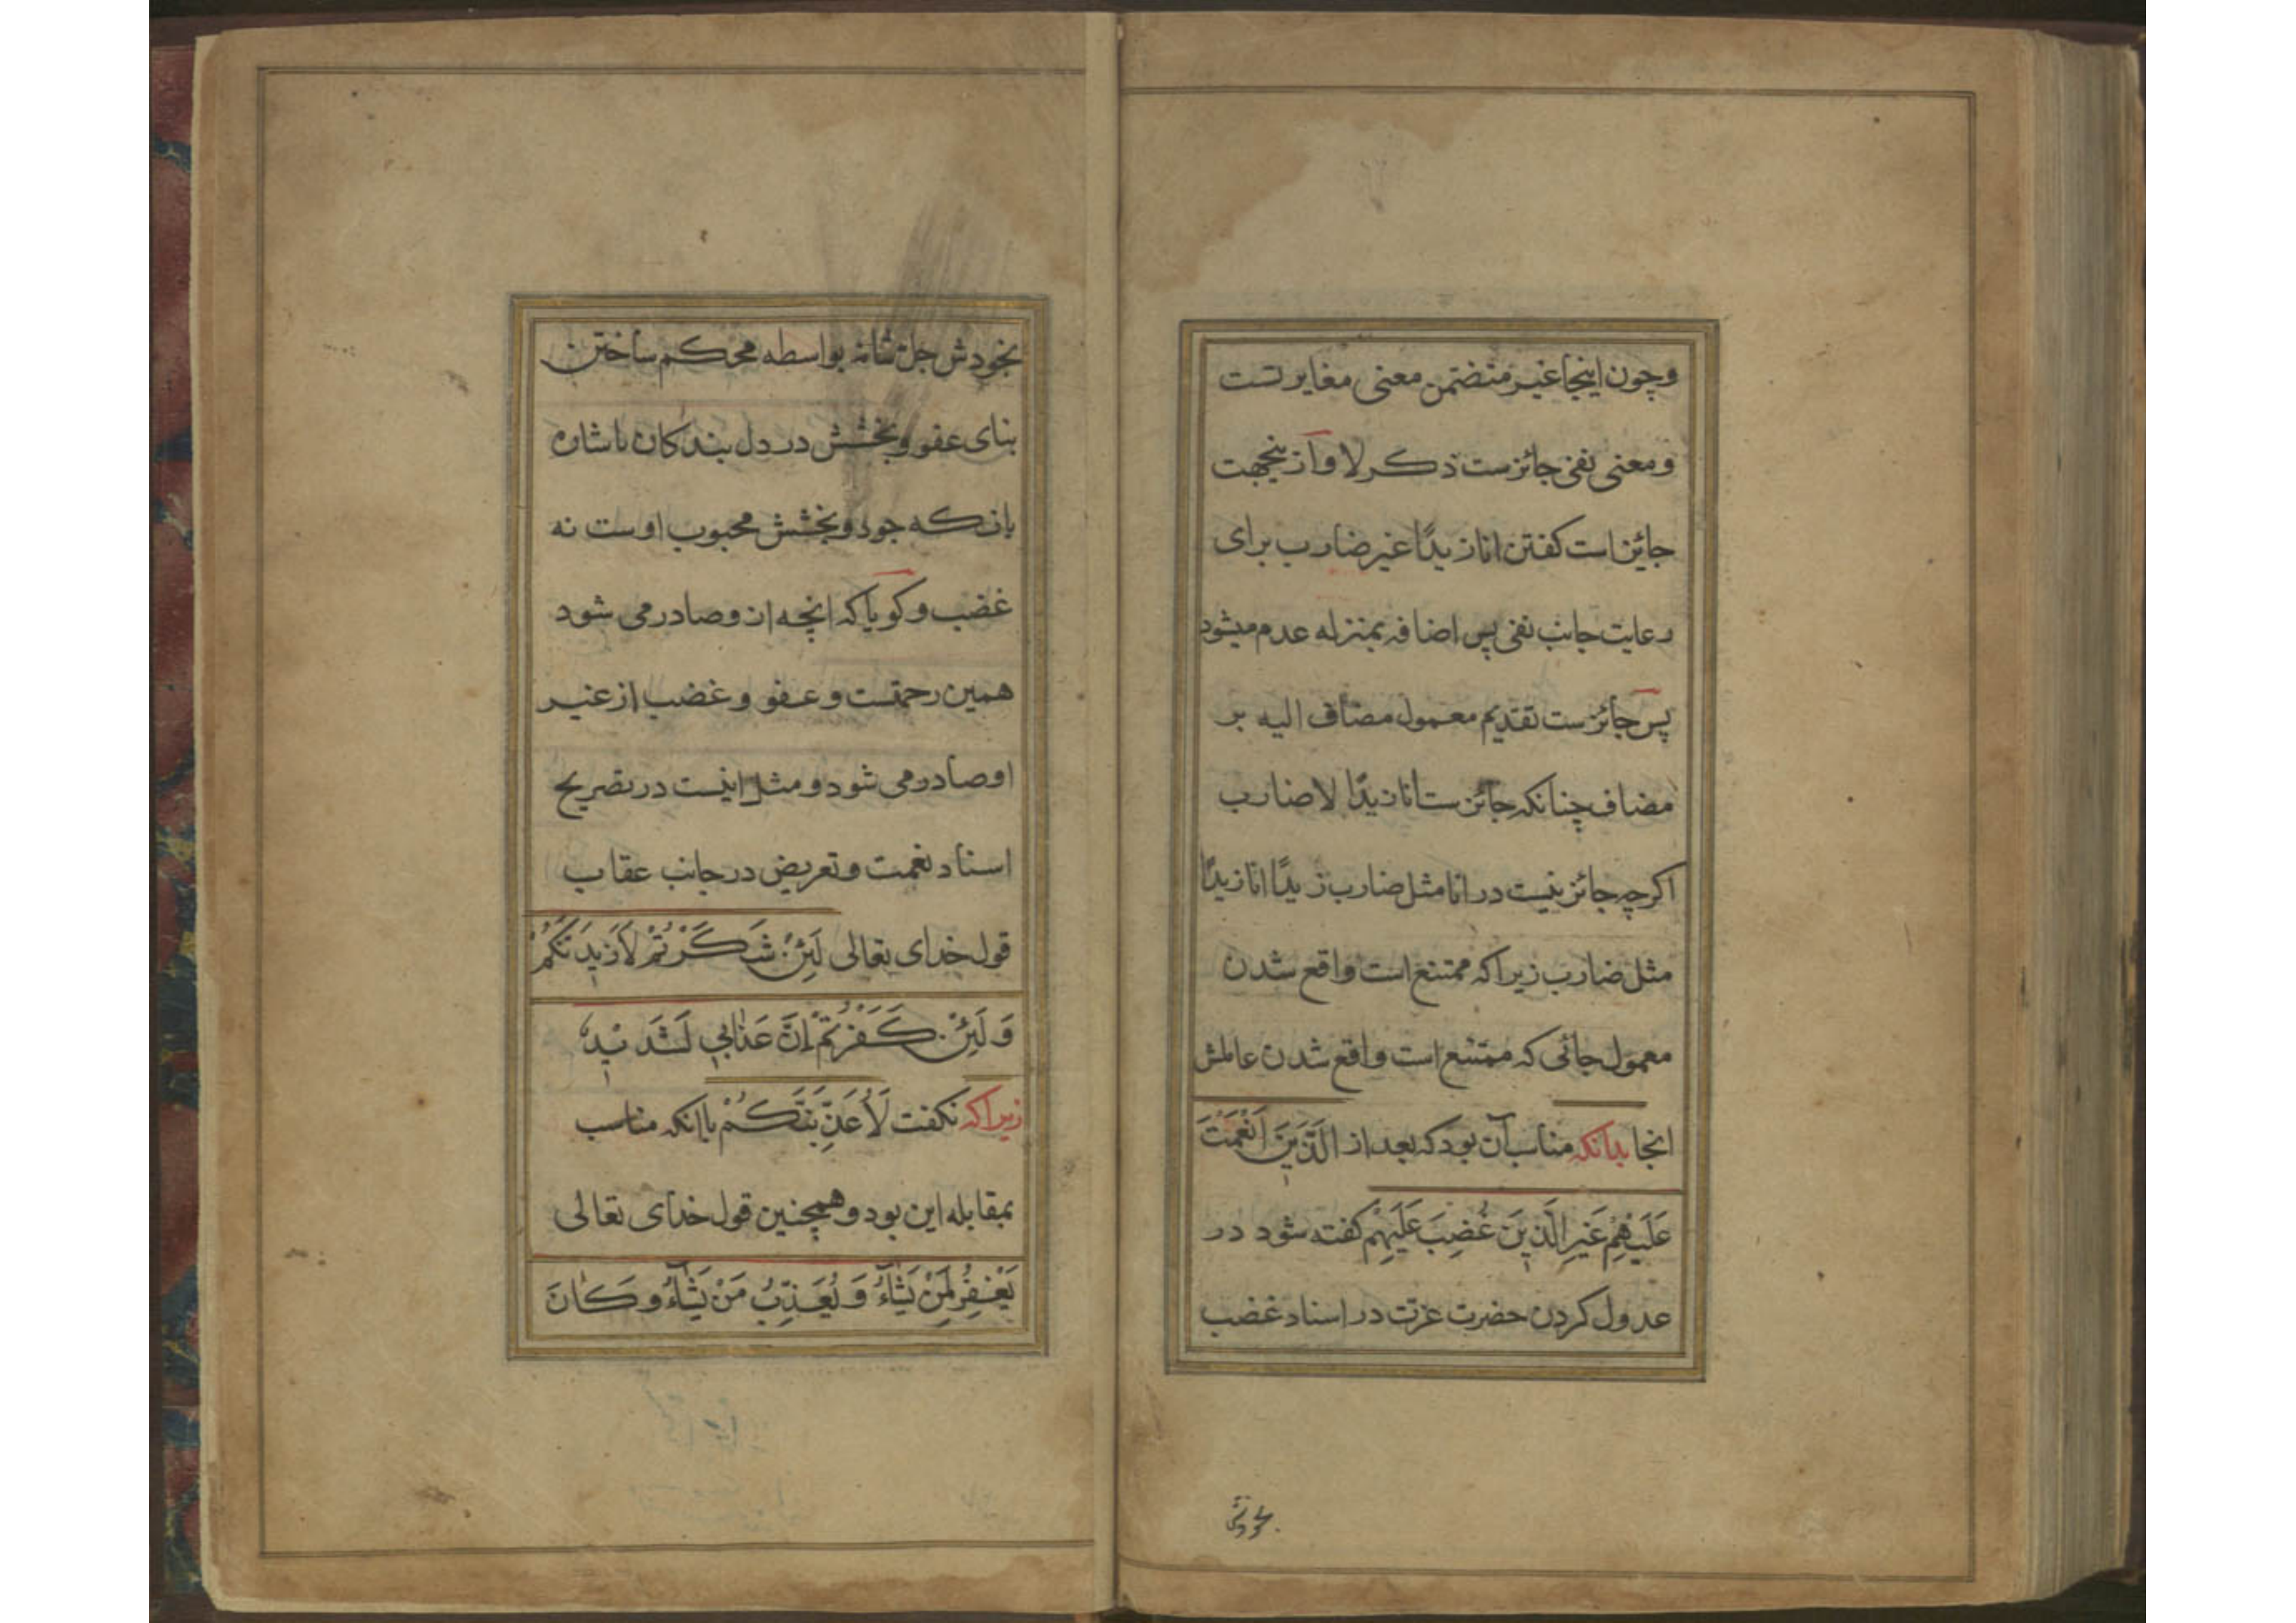 وچون اینجا غیر متضمن معنی مغایرتست
ومعنی نفی جائزست ذکر لا و ازینجهت
جائیز است کفتن انا زیدًا غیر ضارب برای
رعایت جانب نفی پس اضافه بمنزله عدم میشود
پس جائزست تقدیم معمول مضاف الیه بر
مضاف چنانکه جائزست انا زیدًا لا ضارب
اکرچه جائز نیست در انا مثل ضارب زیدًا انا زیدًا
مثل ضارب زیراکه ممتنع است واقع شدن
معمول جائی که ممتنع است واقع شدن عاملش
انجا بدانکه مناسب آن بود که بعد از الَّذِینَ اَنْعَمْتَ
عَلَیْهِمْ غَیْرِ الَّذِینَ غُضِبَ عَلَیْهِمْ کفته شود در
عدول کردن حضرت عزت در اسناد غضب
بخودش
بخودش جل شانه بواسطه محکم ساختن
بنای عفو وبخشش در دل بندکان باشاره
بانکه جود وبخشش محبوب اوست نه
غضب و کویا که انچه ازو صادر می شود
همین رحمتست و عفو و غضب از غیر
او صادر می شود و مثل اینست در تصریح
اسناد نعمت و تعریض در جانب عقاب
قول خدای تعالی لَئِنْ شَکَرْتُمْ لَاَزِیدَنَّکُمْ
وَلَئِنْ کَفَرْتُمْ اِنَّ عَذَابِی لَشَدِیدٌ
زیراکه نکفت لَاُعَذِّبَنَّکُمْ باانکه مناسب
بمقابله این بود و همچنین قول خدای تعالی
یَغْفِرُ لِمَنْ یَشَآءُ وَیُعَذِّبُ مَنْ یَشَآءُ وَکَانَ